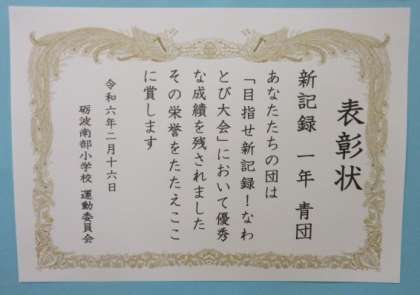 表彰状
新記録 一年 青団
あなたたちの団は
「目指せ新記録！なわ
とび大会」において優秀
な成績を残されました
その栄誉をたたえここ
に賞します
令和六年二月十六日
砺波南部小学校 運動委員会